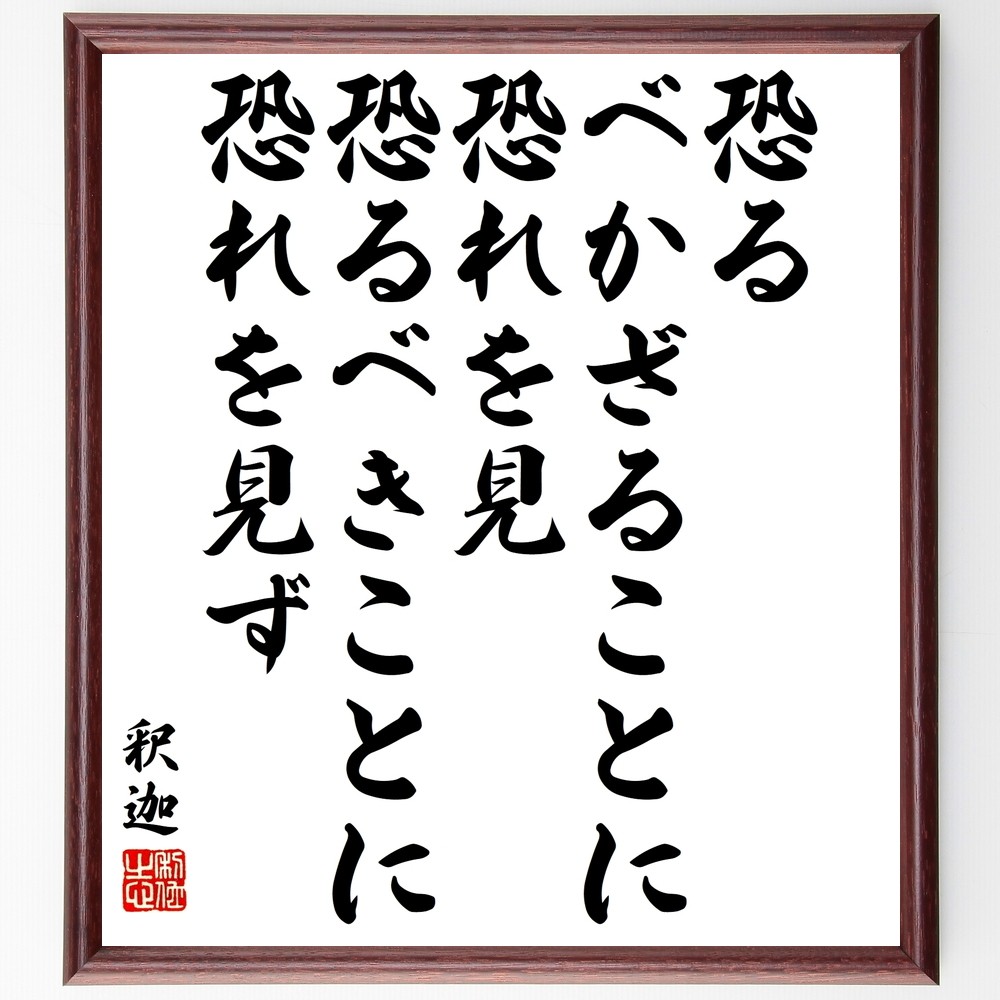 恐る
べかざることに
恐れを見
恐るべきことに
恐れを見ず
釈迦